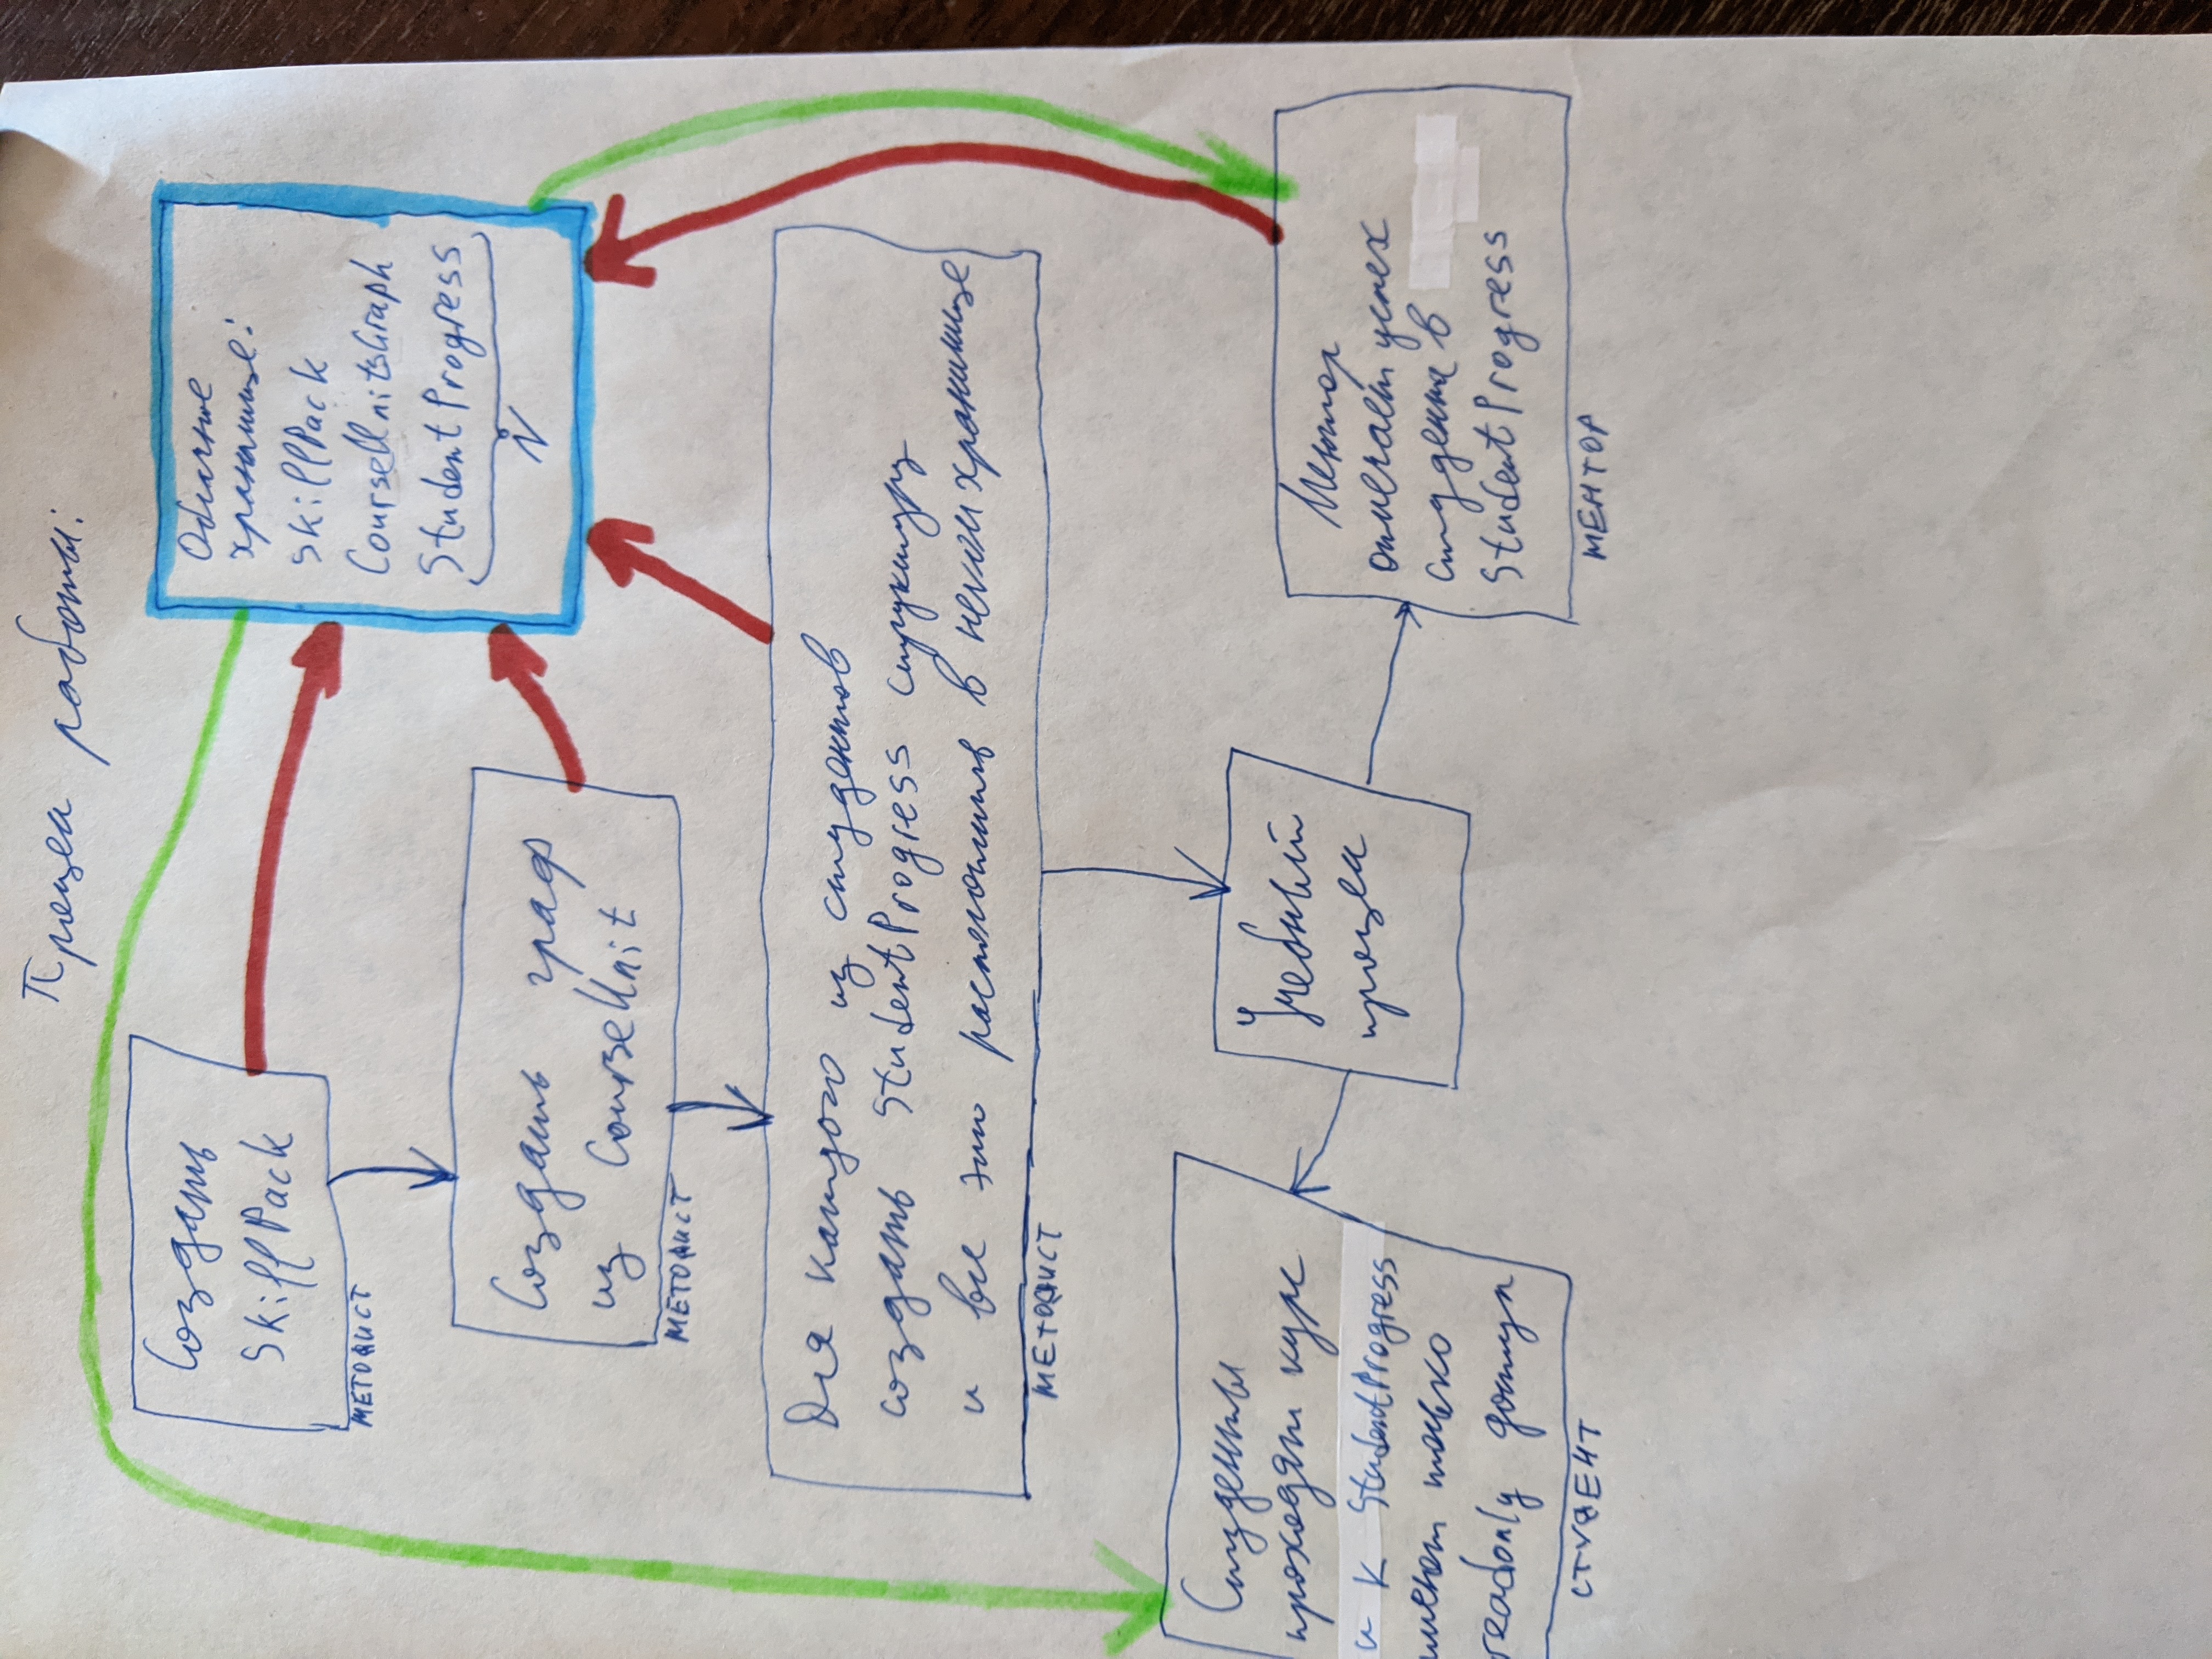 Процесс работы:
Создать
SkillPack
МЕТОДИСТ
Облачное
хранилище:
SkillPack
CourseUnitsGraph
StudentProgress
N
Создать граф
из CourseUnit
МЕТОДИСТ
Для каждого из студентов
создать StudentProgress структуру
и все это расположить в неком хранилище
МЕТОДИСТ
Студенты
проходят курс
и к StudentProgress
имеют только
readonly доступ
СТУДЕНТ
Учебный
процесс
Ментор
отмечает успех
студента в
StudentProgress
МЕНТОР